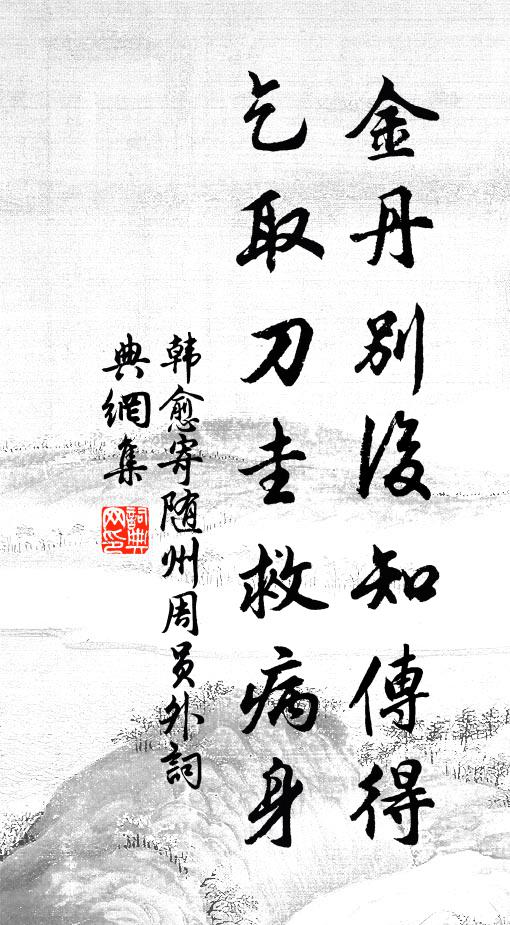 金丹別後知傳得
乞取刀圭救病身
韩愈寄随州周员外詞
典網集
詞典
网印